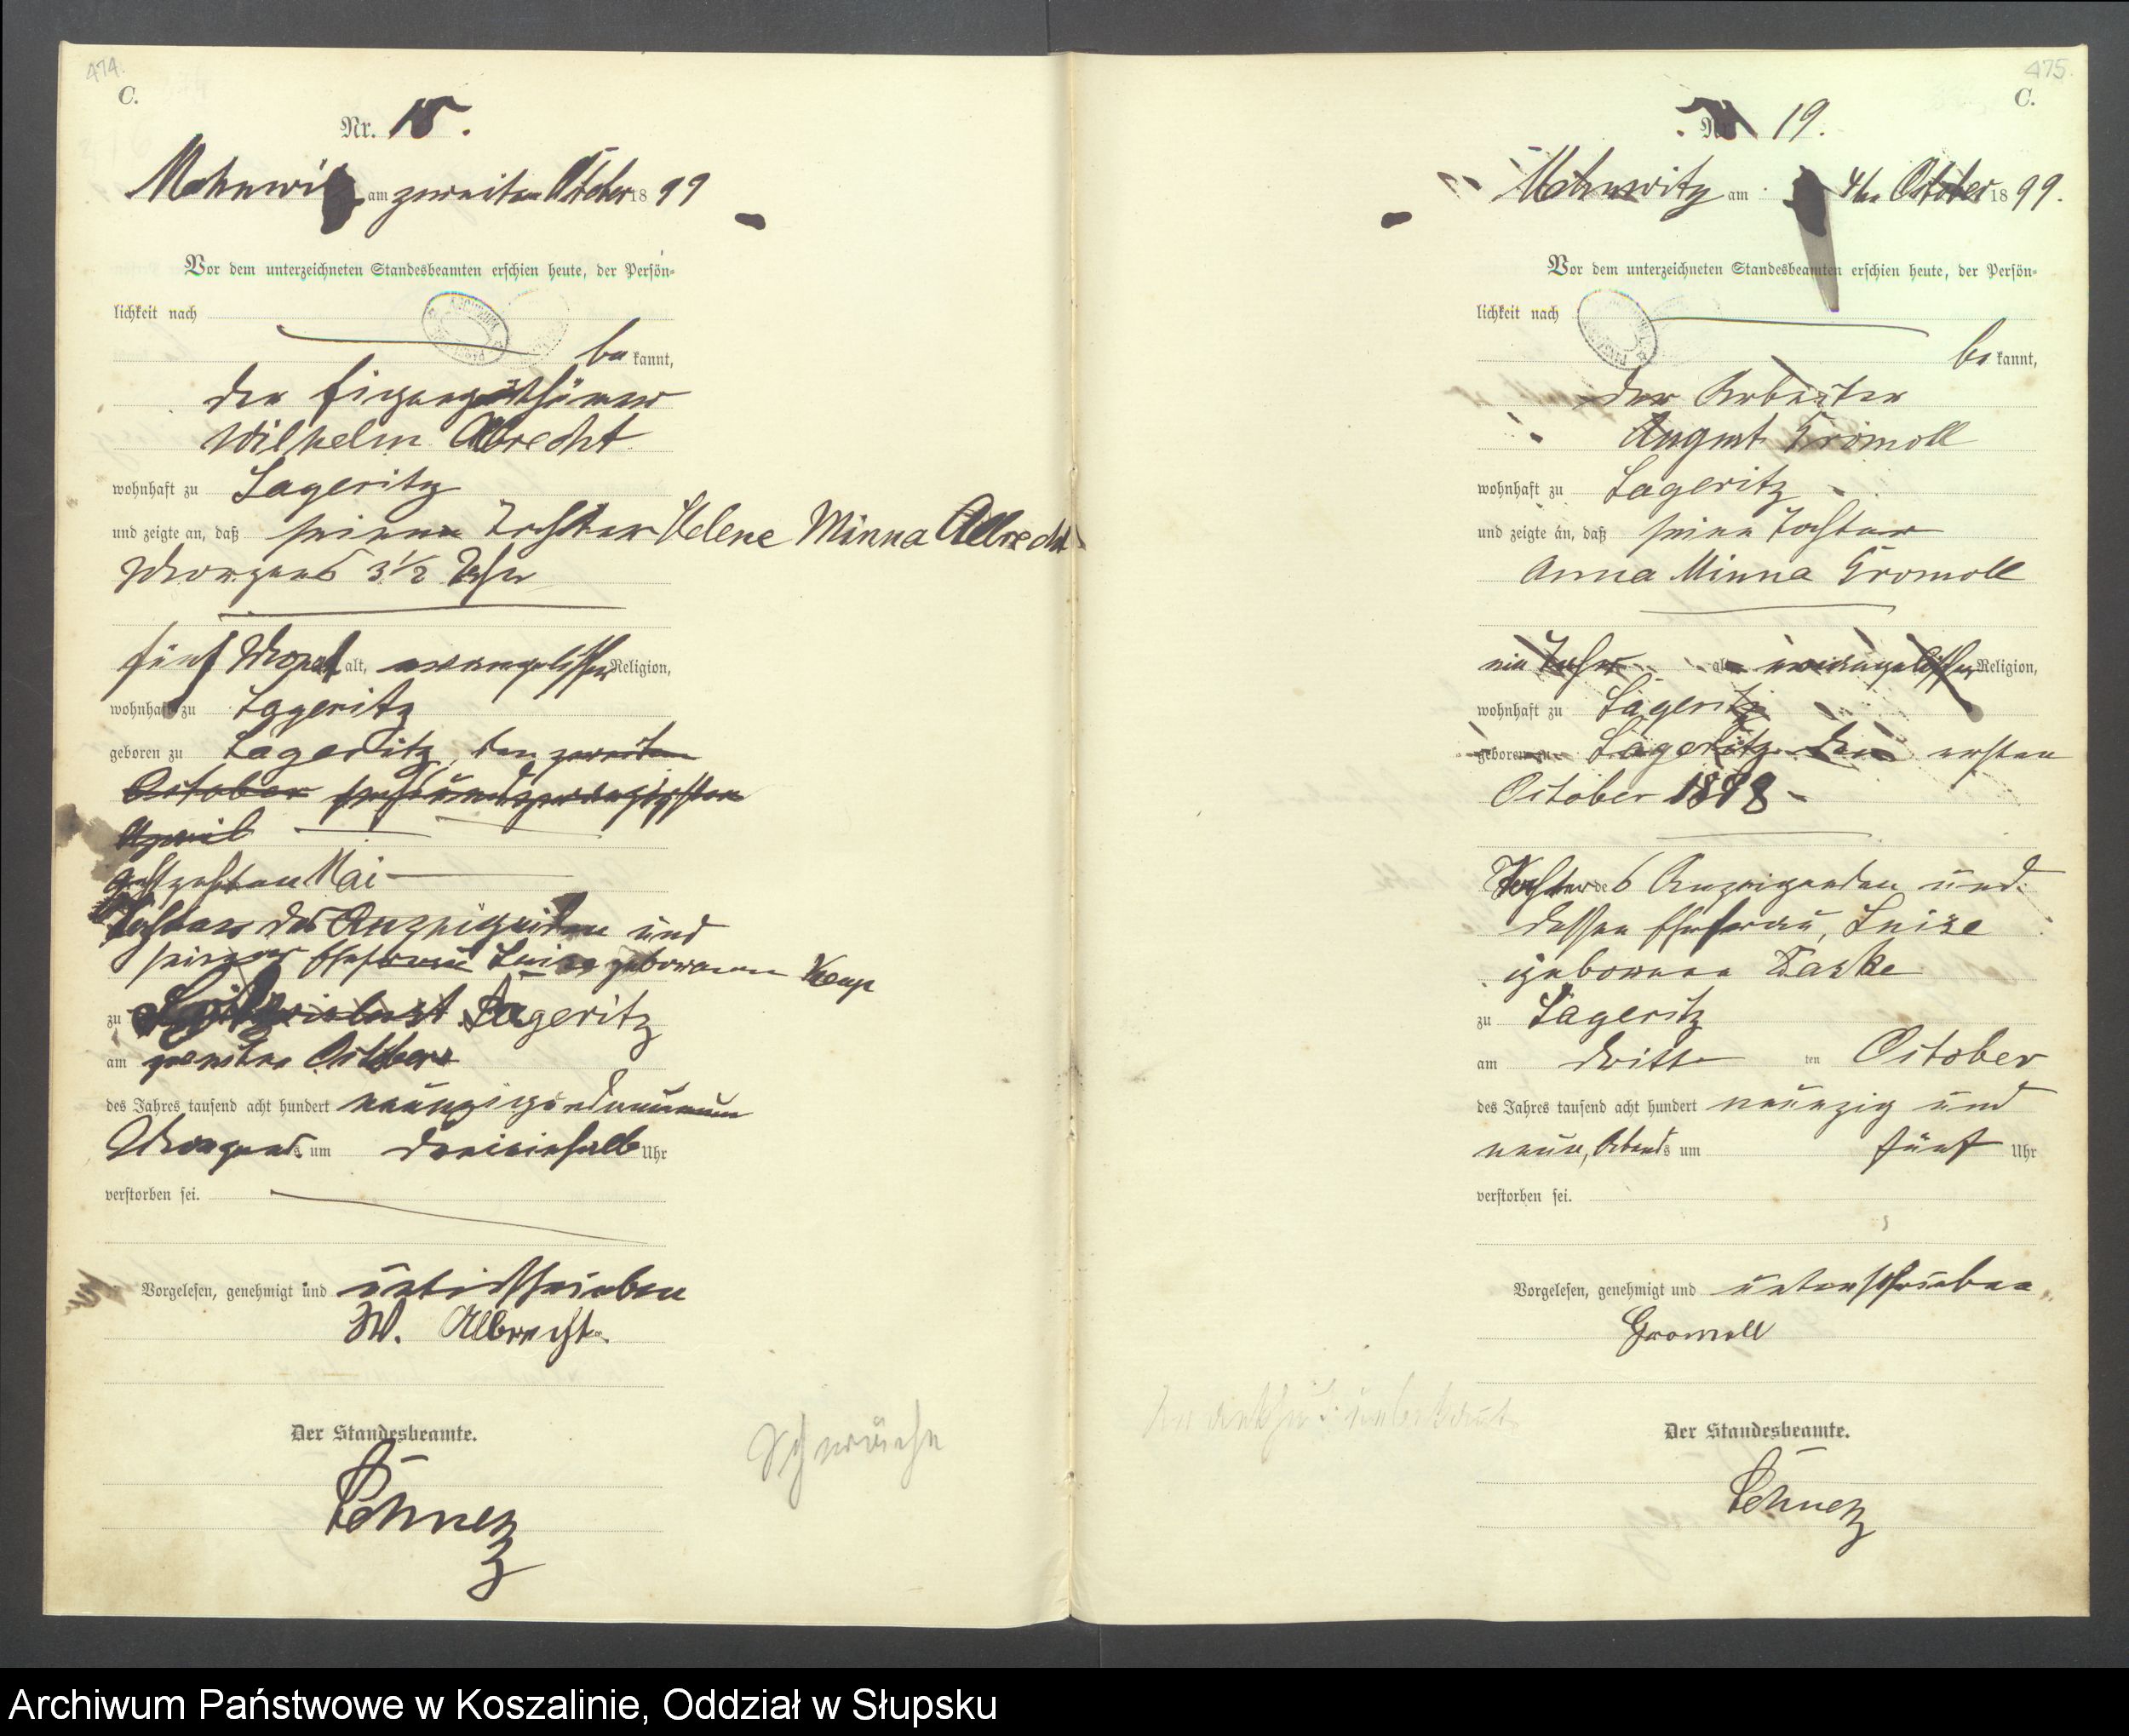 474.
C.
Nr. 18.
Mohnwitz am zweiten October 1899
Vor dem unterzeichneten Standesbeamten erschien heute, der Persön-
lichkeit nach
be kannt,
der Eigenthümer
Wilhelm Albrecht
wohnhaft zu Lageritz
und zeigte an, daß seine Tochter Helene Minna Albrecht
Morgens 3 1/2 Uhr
fünf Monat alt, evangelischer Religion,
wohnhaft zu Lageritz
geboren zu Lageritz, den zweiten
October sechsundzwanzigsten
April
Mai
Tochter des Anzeigenden und
seiner Ehefrau Luise geborenen
zu Lageritz
am zweiten October
des Jahres tausend acht hundert neunzig und neun
Morgens um dreieinhalb Uhr
verstorben sei.
Vorgelesen, genehmigt und unterschrieben
W. Albrecht.
Der Standesbeamte.
Schwäche
475.
C.
Nr. 19.
Mohnwitz am 4ten October 1899.
Vor dem unterzeichneten Standesbeamten erschien heute, der Persön-
lichkeit nach
be kannt,
der Arbeiter
August Gromoll
wohnhaft zu Lageritz
und zeigte an, daß seine Tochter
Anna Minna Gromoll
ein Jahr alt, evangelischer Religion,
wohnhaft zu Lageritz
geboren zu Lageritz den ersten
October 1898
Tochter des Anzeigenden und
dessen Ehefrau, Luise
geborene Taske
zu Lageritz
am dritten October
des Jahres tausend acht hundert neunzig und
neun, Abends um fünf Uhr
verstorben sei.
Vorgelesen, genehmigt und unterschrieben
Gromoll
Der Standesbeamte.
Archiwum Państwowe w Koszalinie, Oddział w Słupsku